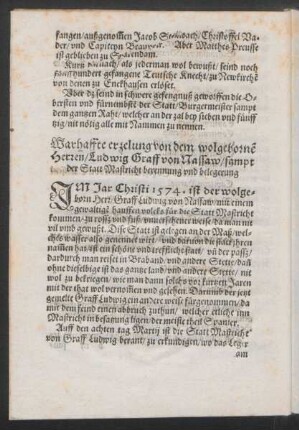 fangen/außgenommen Jacob Steinbach/Christoffel Va-
der/vnd Capiteyn Beauvoir. Aber Matthes Preusse
ist geblieben zu Sparendam.
Kurtz hernach/als jederman wol bewust/seind noch
hundert gefangene Teutsche Knecht/zu Newkirche
von denen zu Enckhausen erlöset.
Wie dz seind in schwere gefengknuß geworffen die O-
bersten vnd fürnembste der Statt/Burgermeister sampt
dem gantzen Raht/welcher an der zal bey sieben vnd fünff
tzig/nit nötig alle mit Namen zu nennen.
Warhaffte erzelung von dem wolgebornē
Herren/Ludwig Graff von Nassaw/sampt
der Statt Mastricht berennung vnd belegerung
IM Jar Christi 1574. ist der wolge-
born Herr/Graff Ludwig von Nassaw mit einem
gewaltigē hauffen volcks für die Statt Mastricht
kommen/zu roß vnd fuß/vnuersehener weise da man nit
vil vmb gewust. Dise Statt ist gelegen an der Maß/wel-
ches wasser an allen seiten/vnd mitten die statt hin
fleust/es ist ein schöne vnd treffliche statt/vñ der paß/
dardurch man reiset in Brabandt vnd andere Stätt/dañ
ohne dieselbige ist das gantze land/vnd andere Stette/nit
wol zu bekriegen/wie man dann solchs vor kurtzen Jaren
mit der that wol vernommen vnd gesehen. Darumb der jetzt
gemelte Graff Ludwig ein andere weise fürgenommen/da
mit dem feind einen abbruch zuthun/welcher etlich inn
Mastricht in besatzung ligen/der meiste theil Spanier.
Auff den achten tag Martij ist die Statt Mastricht
von Graff Ludwig berant/zu erkundigen/wo das Leger
am